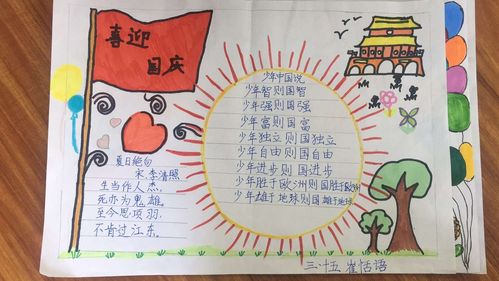 喜迎
国庆
夏日绝句
宋 李清照
生当作人杰,
死亦为鬼雄,
至今思项羽,
不肯过江东。
少年中国说
少年智则国智
少年强则国强
少年富则国富
少年独立则国独立
少年自由则国自由
少年进步则国进步
少年胜于欧洲则国胜于欧洲
少年雄于地球则国雄于地球
三·十五 崔恬语